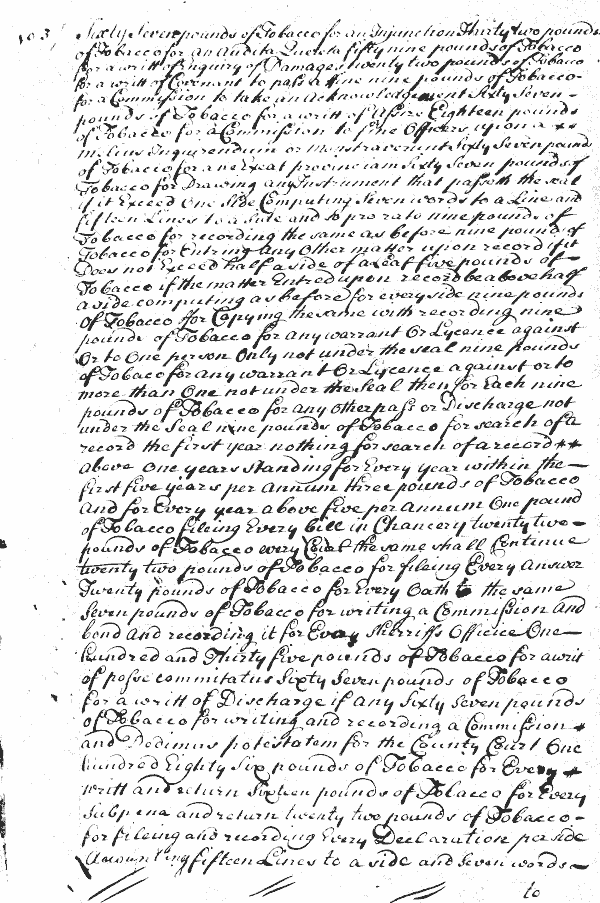 103
Sixty Seven pounds of Tobacco for an Injunction Thirty two pounds
of Tobacco for an Audita Querela fifty nine pounds of Tobacco
for a writt of Enquiry of Damages twenty two pounds of Tobacco
for a writt of Covenant to pass a fine nine pounds of Tobacco
for a Commission to take an Acknowledgement Sixty Seven
pounds of Tobacco for a writt of Assize Eighteen pounds
of Tobacco for a Commission to Officers upon a
melius Inquirendum or monstraverunt Sixty Seven pound
of Tobacco for a ne Exeat provinciam Sixty Seven pounds of
Tobacco for Drawing any Instrument that passeth the seal
if it Exceed One Side Computing Seven words to a Line and
fifteen Lines to a Side and so pro rato nine pounds of
Tobacco for recording the same as before nine pound of
Tobacco for Entring Any Other matter upon record if it
Does not Exceed half a side of a Leaf five pounds of
Tobacco if the matter Entred upon record be above half
a side computing as before for every side nine pounds
Of Tobacco ffor Copying the same with recording nine
pounds of Tobacco for any warrant Or Lycence against
Or to One person Only not under the seal nine pounds
of Tobacco for any warrant Or Lycence against or to
more than One not under the Seal then for Each nine
pounds of Tobacco for any Other pass or Discharge not
under the Seal nine pounds of Tobacco for search of a
record the first year nothing for search of a record
above One years standing for Every year within the
first five years per Annum three pounds of Tobacco
And for Every year above five per Annum One pound
of Tobacco fileing Every bill in Chancery twenty two
pounds of Tobacco every Court the same shall Continue
twenty two pounds of Tobacco for fileing Every Answer
Twenty pounds of Tobacco for Every Oath to the same
Seven pounds of Tobacco for writing a Commission And
bond And recording it for Every Sherriffs Officice One
hundred and Thirty five pounds of Tobacco for a writ
of posse commitatus Sixty Seven pounds of Tobacco
for a writt of Discharge if any Sixty Seven pounds
of Tobacco for writing and recording a Commission
and Dedimus potestatem for the County Court One
hundred Eighty Six pounds of Tobacco for Every
writt and return Sixteen pounds of Tobacco for Every
Subpena and return twenty two pounds of Tobacco
for fileing and recording Every Declaration per side
Accounting fifteen Lines to a side and Seven words
to